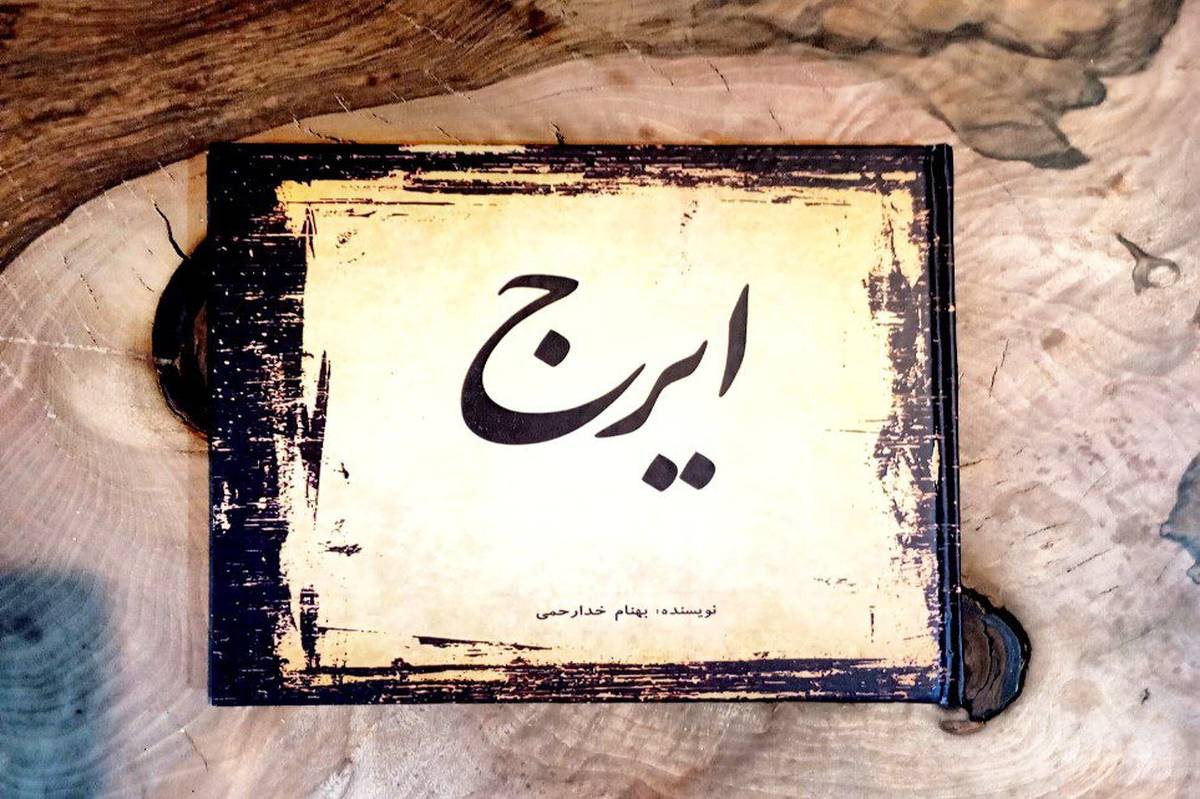 ایرج
نویسنده: بهنام خدارحمی